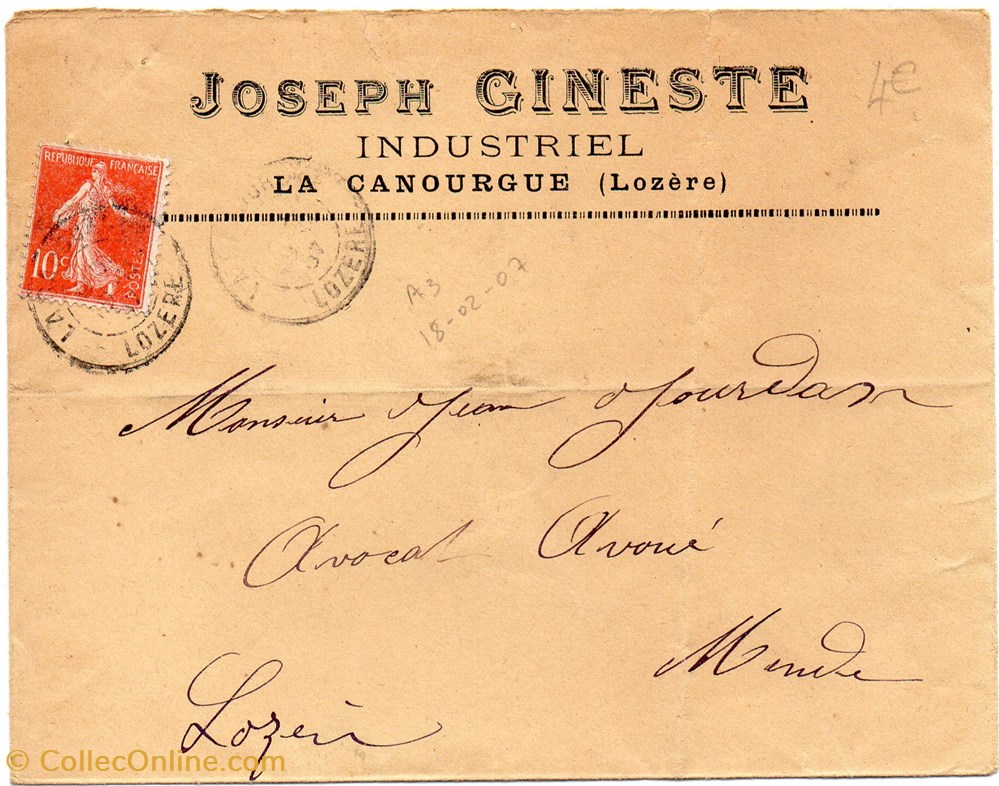 JOSEPH GINESTE
4€
INDUSTRIEL
LA CANOURGUE (Lozère)
REPUBLIQUE FRANÇAISE
10c
POSTES
LA
LOZERE
LOZERE
A3
18-02-07
Monsieur Jean Jourdan
Avocat Avoué
Mende
Lozère
© CollecOnline.com